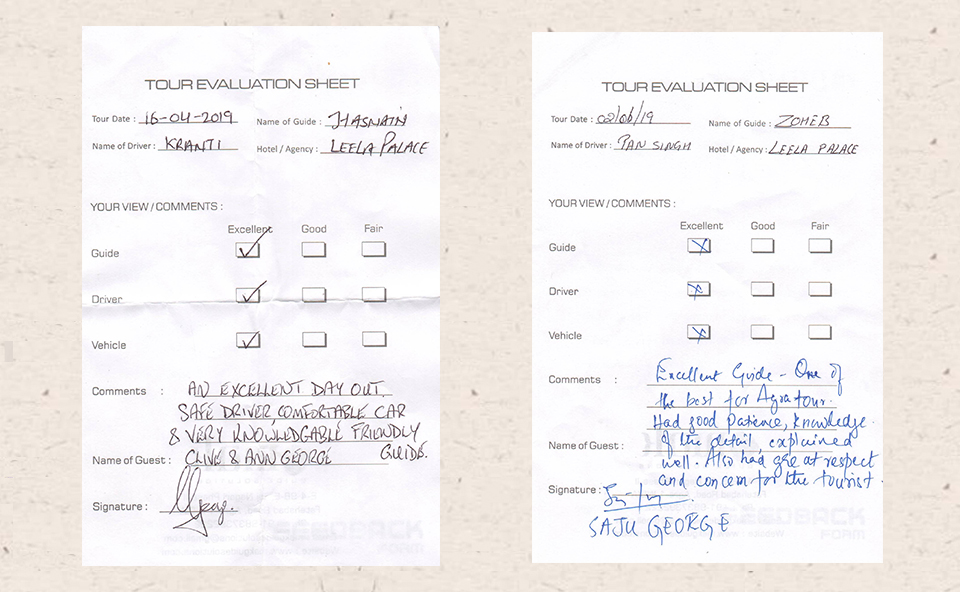 TOUR EVALUATION SHEET
Tour Date : 16-04-2019 Name of Guide : HASNAIN
Name of Driver : KRANTI Hotel / Agency : LEELA PALACE
YOUR VIEW / COMMENTS :
Excellent Good Fair
Guide
Driver
Vehicle
Comments : AN EXCELLENT DAY OUT.
SAFE DRIVER, COMFORTABLE CAR
& VERY KNOWLEDGABLE FRIENDLY
GUIDE.
Name of Guest : CLIVE & ANN GEORGE
Signature :
TOUR EVALUATION SHEET
Tour Date : 02/06/19 Name of Guide : ZOHEB
Name of Driver : PAN SINGH Hotel / Agency : LEELA PALACE
YOUR VIEW / COMMENTS :
Excellent Good Fair
Guide
Driver
Vehicle
Comments : Excellent Guide - One of
the best for Agra tour.
Had good patience, knowledge
Name of Guest : of the detail, explained
well. Also had great respect
and concern for the tourist.
Signature :
SAJU GEORGE